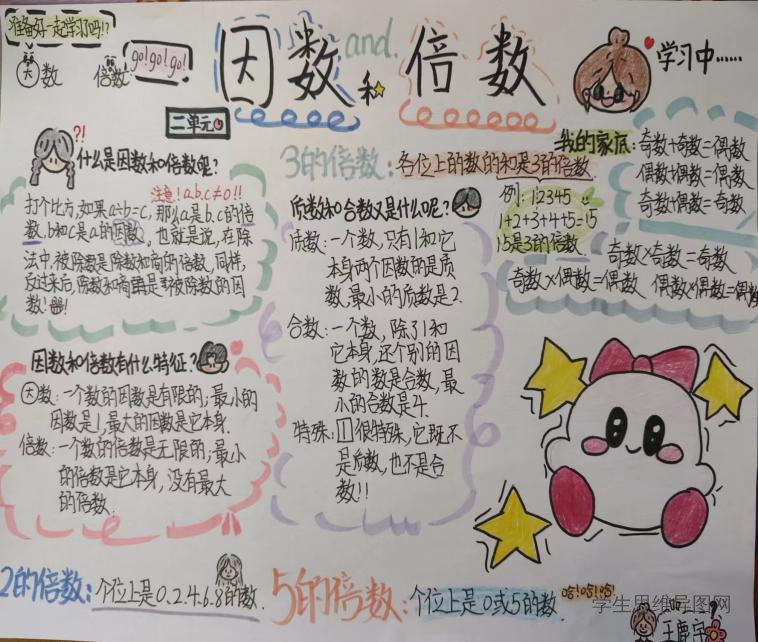 准备好一起学习了吗!?
因数 倍数:
go!go!go!
因数and.
和
倍数
学习中……
二单元
?!
什么是因数和倍数呢?
注意!a.b.c≠0!!
打个比方,如果a÷b=c,那么a是b.c的倍
数,b和c是a的因数,也就是说,在除
法中,被除数是除数和商的倍数,同样,
反过来后,除数和商是被除数的因
数!
因数和倍数有什么特征?
因数:一个数的因数是有限的;最小的
因数是1,最大的因数是它本身.
倍数:一个数的倍数是无限的;最小
的倍数是它本身,没有最大
的倍数.
3的倍数:各位上的数的和是3的倍数
例:12345
1+2+3+4+5=15
15是3的倍数
质数和合数又是什么呢?
质数:一个数,只有1和它
本身两个因数的是质
数,最小的质数是2.
合数:一个数,除了1和
它本身,还个别的因
数的数是合数,最
小的合数是4.
特殊:1很特殊,它既不
是质数,也不是合
数!!
我的家底:奇数+奇数=偶数
偶数+偶数=偶数
奇数+偶数=奇数
奇数×奇数=奇数
奇数×偶数=偶数 偶数×偶数=偶数
2的倍数:个位上是0.2.4.6.8的数.
5的倍数:个位上是0或5的数
哈!哈!哈!
学生思维导图网